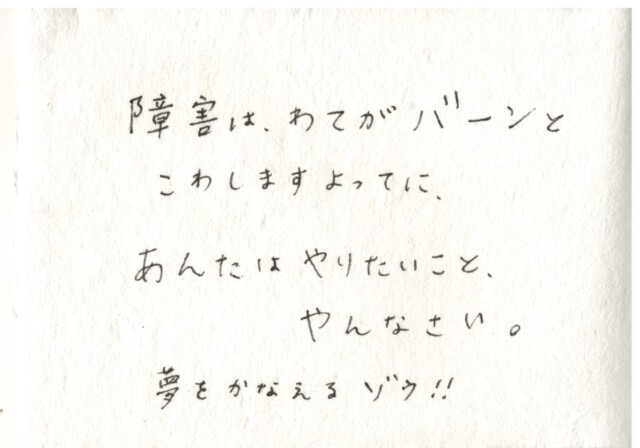 障害は、わてがバーンと
こわしますよってに、
あんたは やりたいこと、
やんなさい。
夢をかなえる ゾウ!!